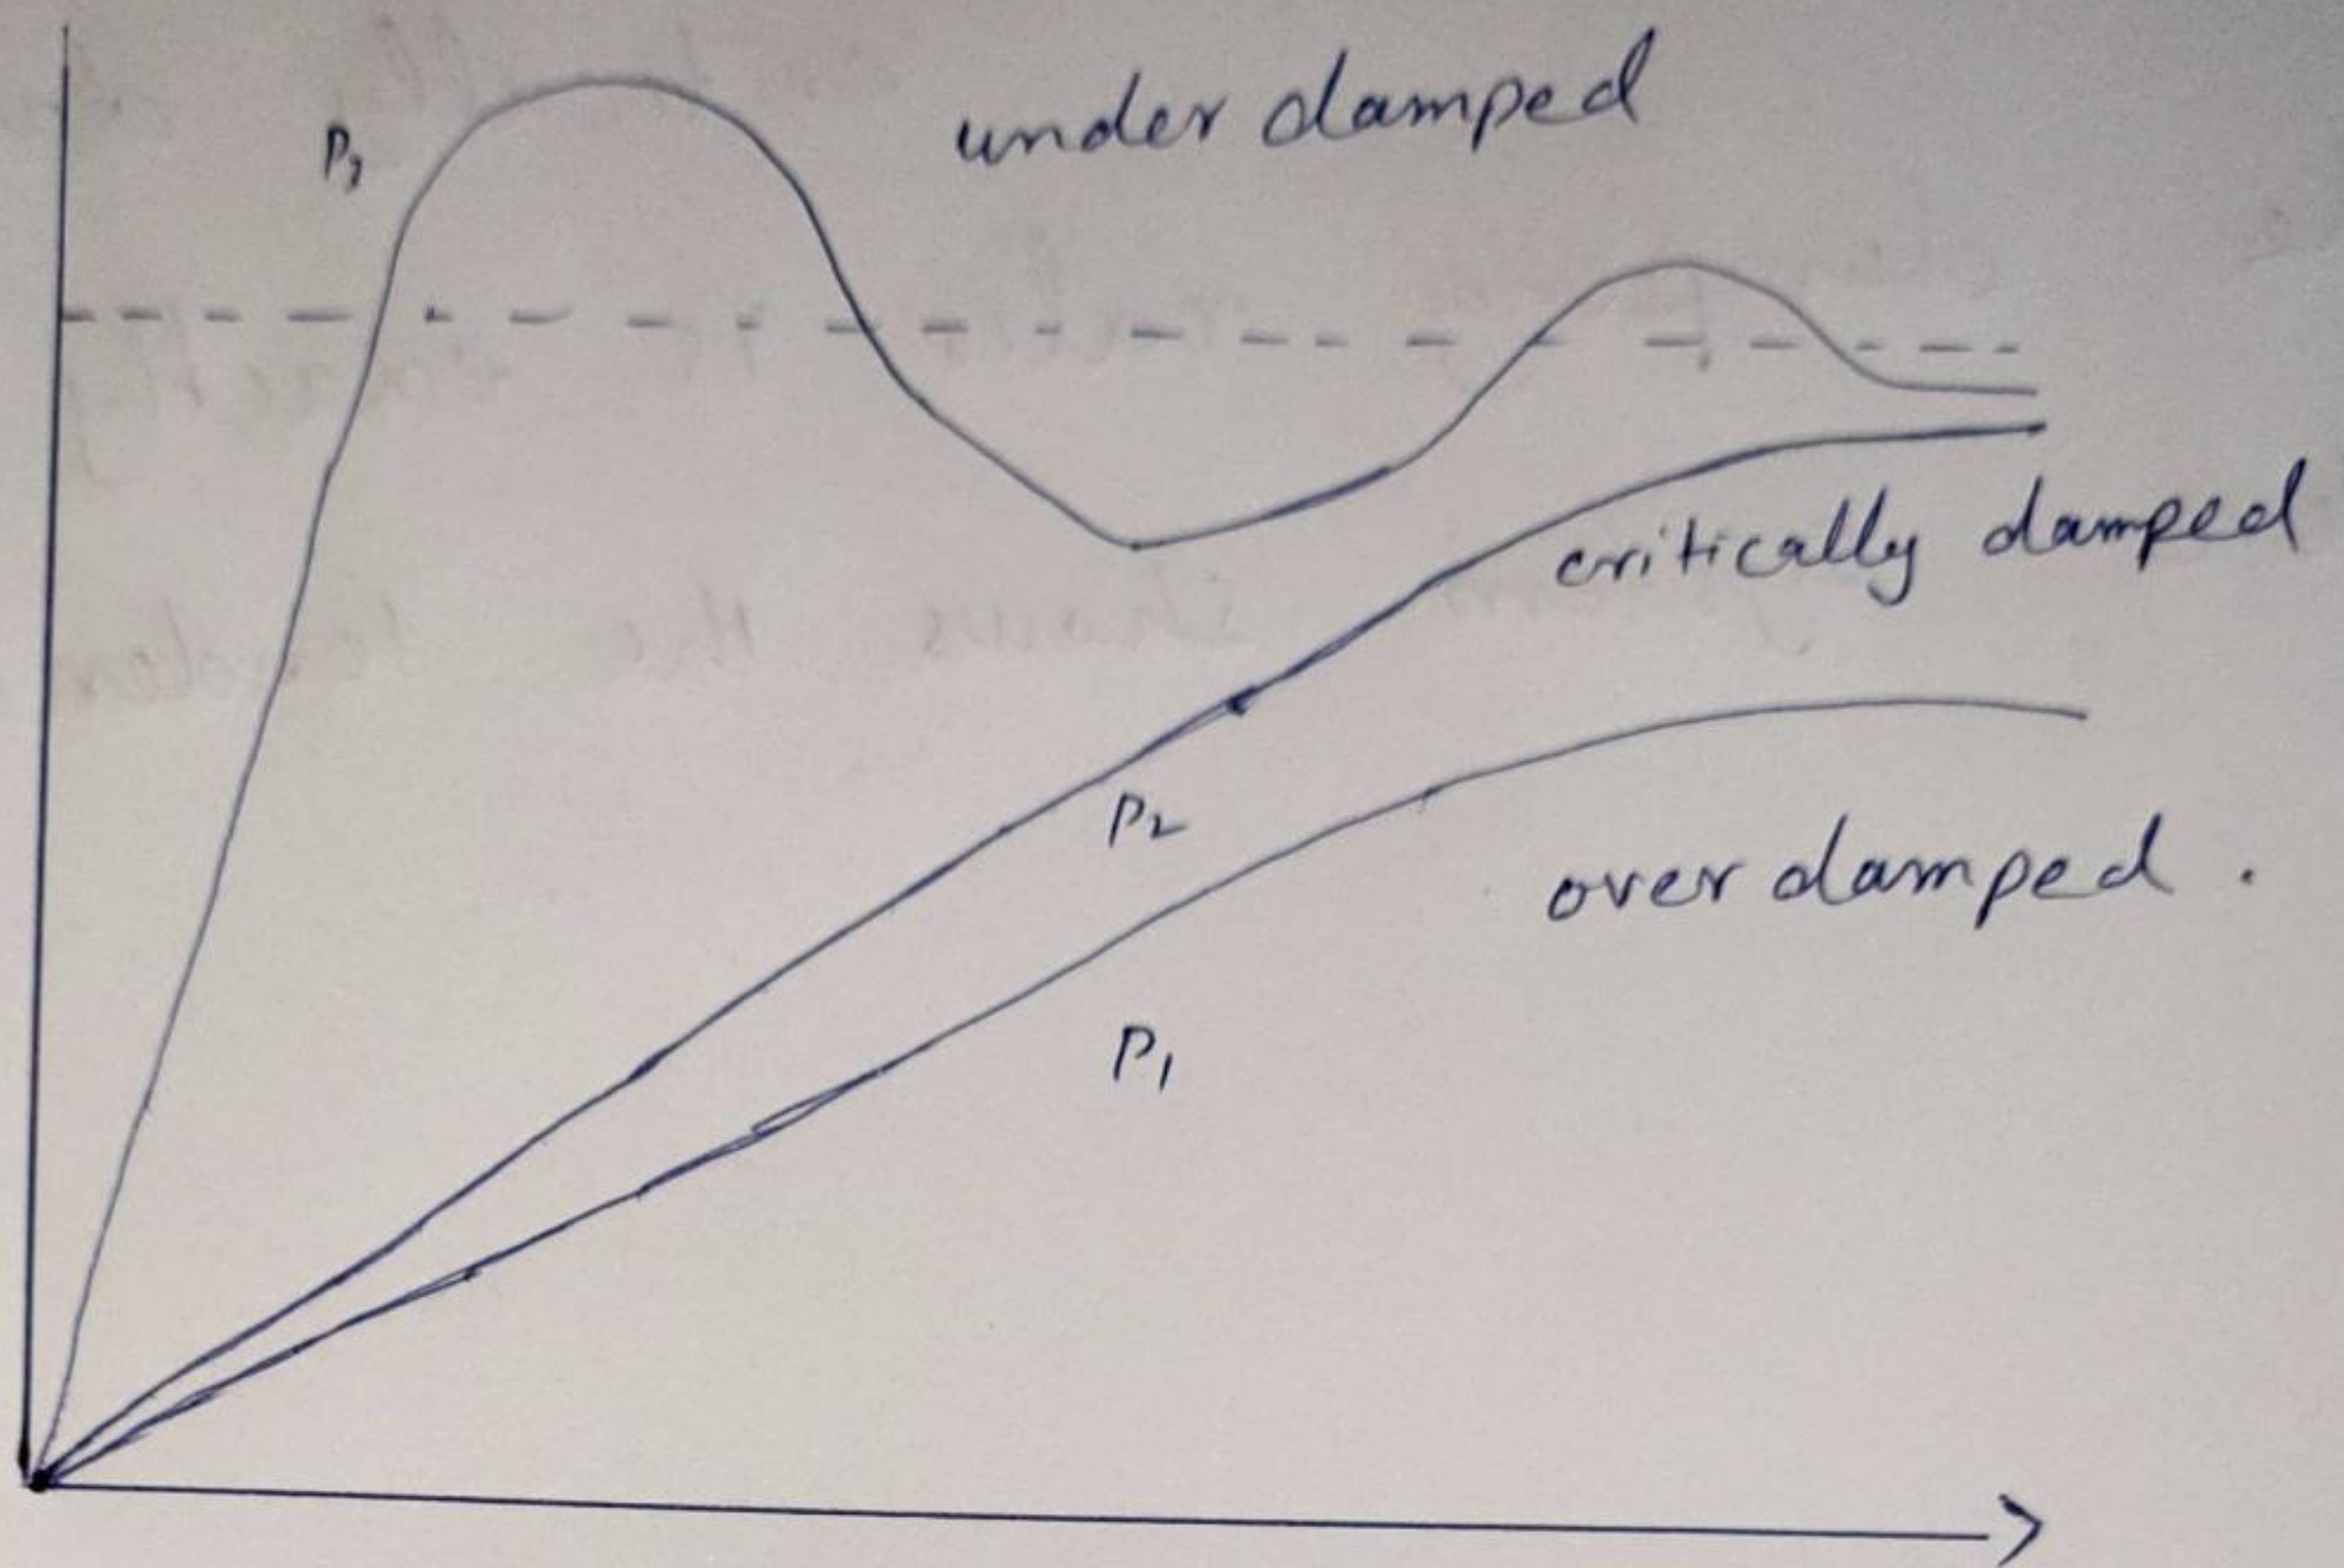 P3
under damped
critically damped
P2
over damped .
P1